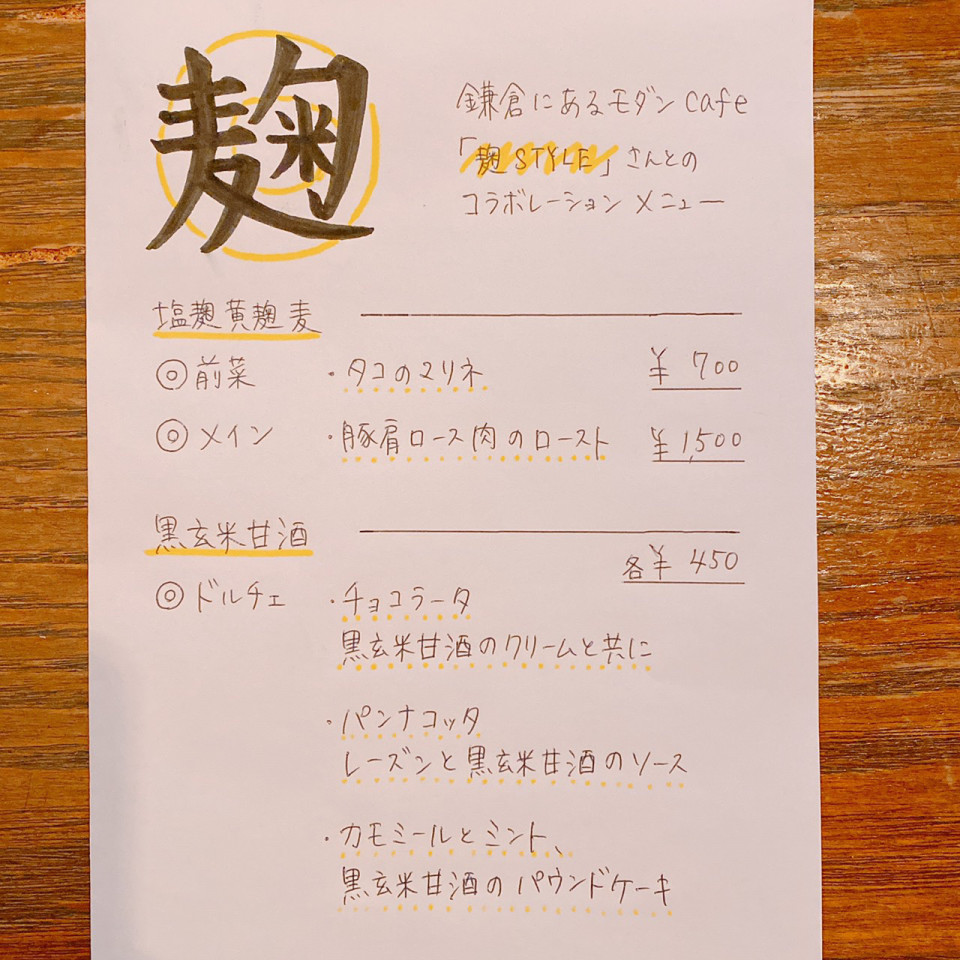 麹
鎌倉にあるモダンcafe
「麹STYLE」さんとの
コラボレーションメニュー
塩麹黄麹麦
◎前菜 ・タコのマリネ ¥700
◎メイン ・豚肩ロース肉のロースト ¥1,500
黒玄米甘酒
各¥450
◎ドルチェ ・チョコラータ
黒玄米甘酒のクリームと共に
・パンナコッタ
レーズンと黒玄米甘酒のソース
・カモミールとミント、
黒玄米甘酒のパウンドケーキ